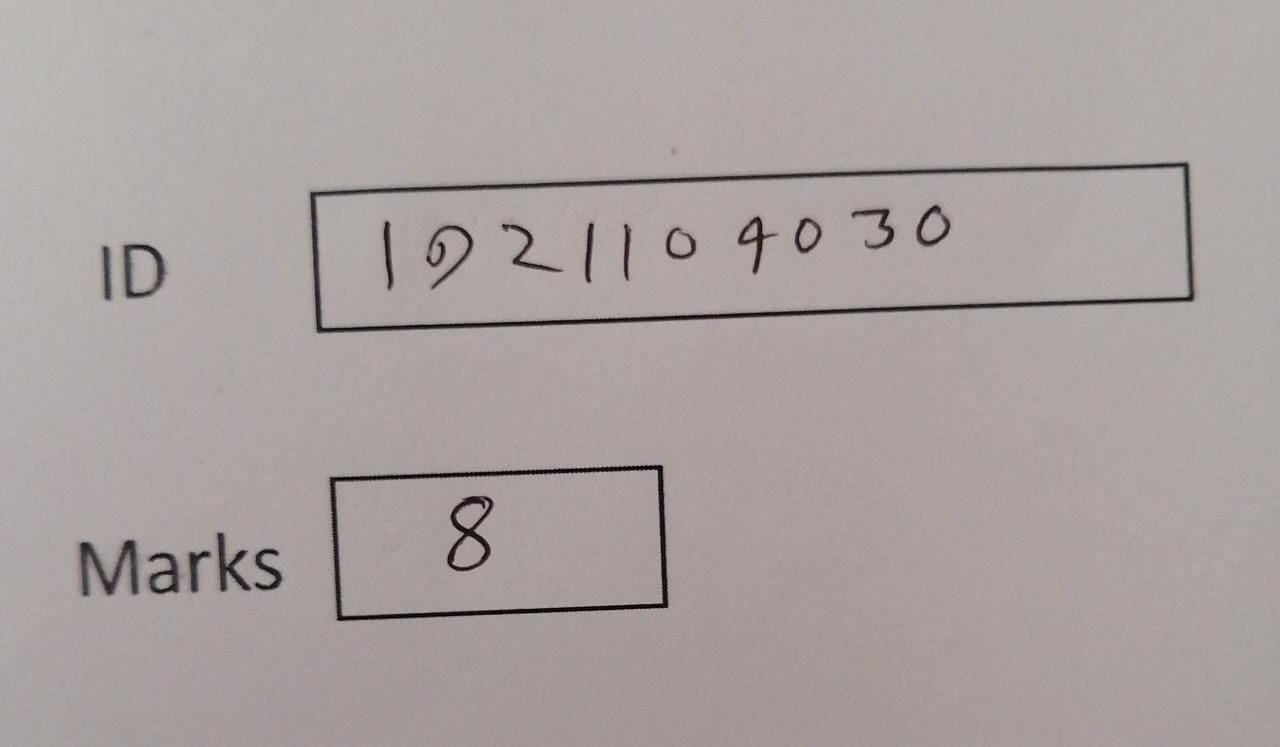 ID 1921104030
Marks 8